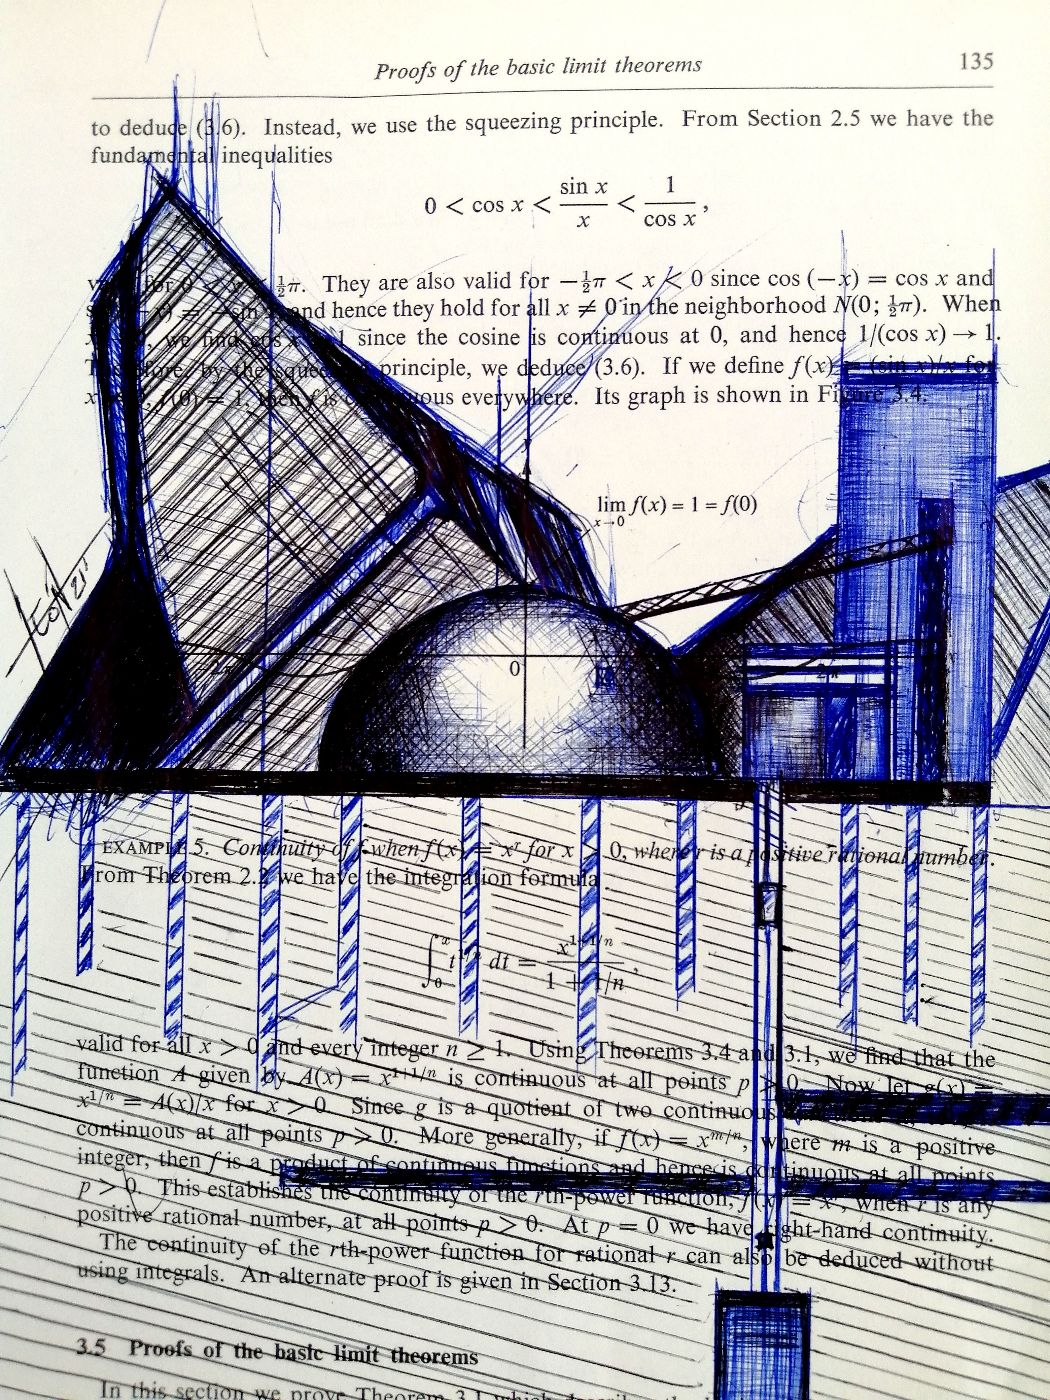 Proofs of the basic limit theorems 135
to deduce (3.6). Instead, we use the squeezing principle. From Section 2.5 we have the
fundamental inequalities
0 < cos x < sin x / x < 1 / cos x ,
for 0 < ½π. They are also valid for −½π < x < 0 since cos (−x) = cos x and
and hence they hold for all x ≠ 0 in the neighborhood N(0; ½π). When
we find cos x → 1 since the cosine is continuous at 0, and hence 1/(cos x) → 1.
Therefore, by the squeezing principle, we deduce (3.6). If we define f(x) = (sin x)/x for
f(0) = 1, then f is continuous everywhere. Its graph is shown in Figure 3.4.
y
lim f(x) = 1 = f(0)
x→0
0
EXAMPLE 5. Continuity of f when f(x) = xʳ for x > 0, where r is a positive rational number.
From Theorem 2.2 we have the integration formula
∫₀ˣ t¹ᐟⁿ dt = x¹⁺¹ᐟⁿ / 1 + 1/n ,
valid for all x > 0 and every integer n ≥ 1. Using Theorems 3.4 and 3.1, we find that the
function A given by A(x) = x¹⁺¹ᐟⁿ is continuous at all points p > 0. Now let g(x) =
x¹ᐟⁿ = A(x)/x for x > 0. Since g is a quotient of two continuous
continuous at all points p > 0. More generally, if f(x) = xᵐᐟⁿ, where m is a positive
integer, then f is a product of continuous functions and hence is continuous at all points
p > 0. This establishes the continuity of the rth-power function, f(x) = xʳ, when r is any
positive rational number, at all points p > 0. At p = 0 we have right-hand continuity.
The continuity of the rth-power function for rational r can also be deduced without
using integrals. An alternate proof is given in Section 3.13.
3.5 Proofs of the basic limit theorems
In this section we prove Theorem 3.1 which